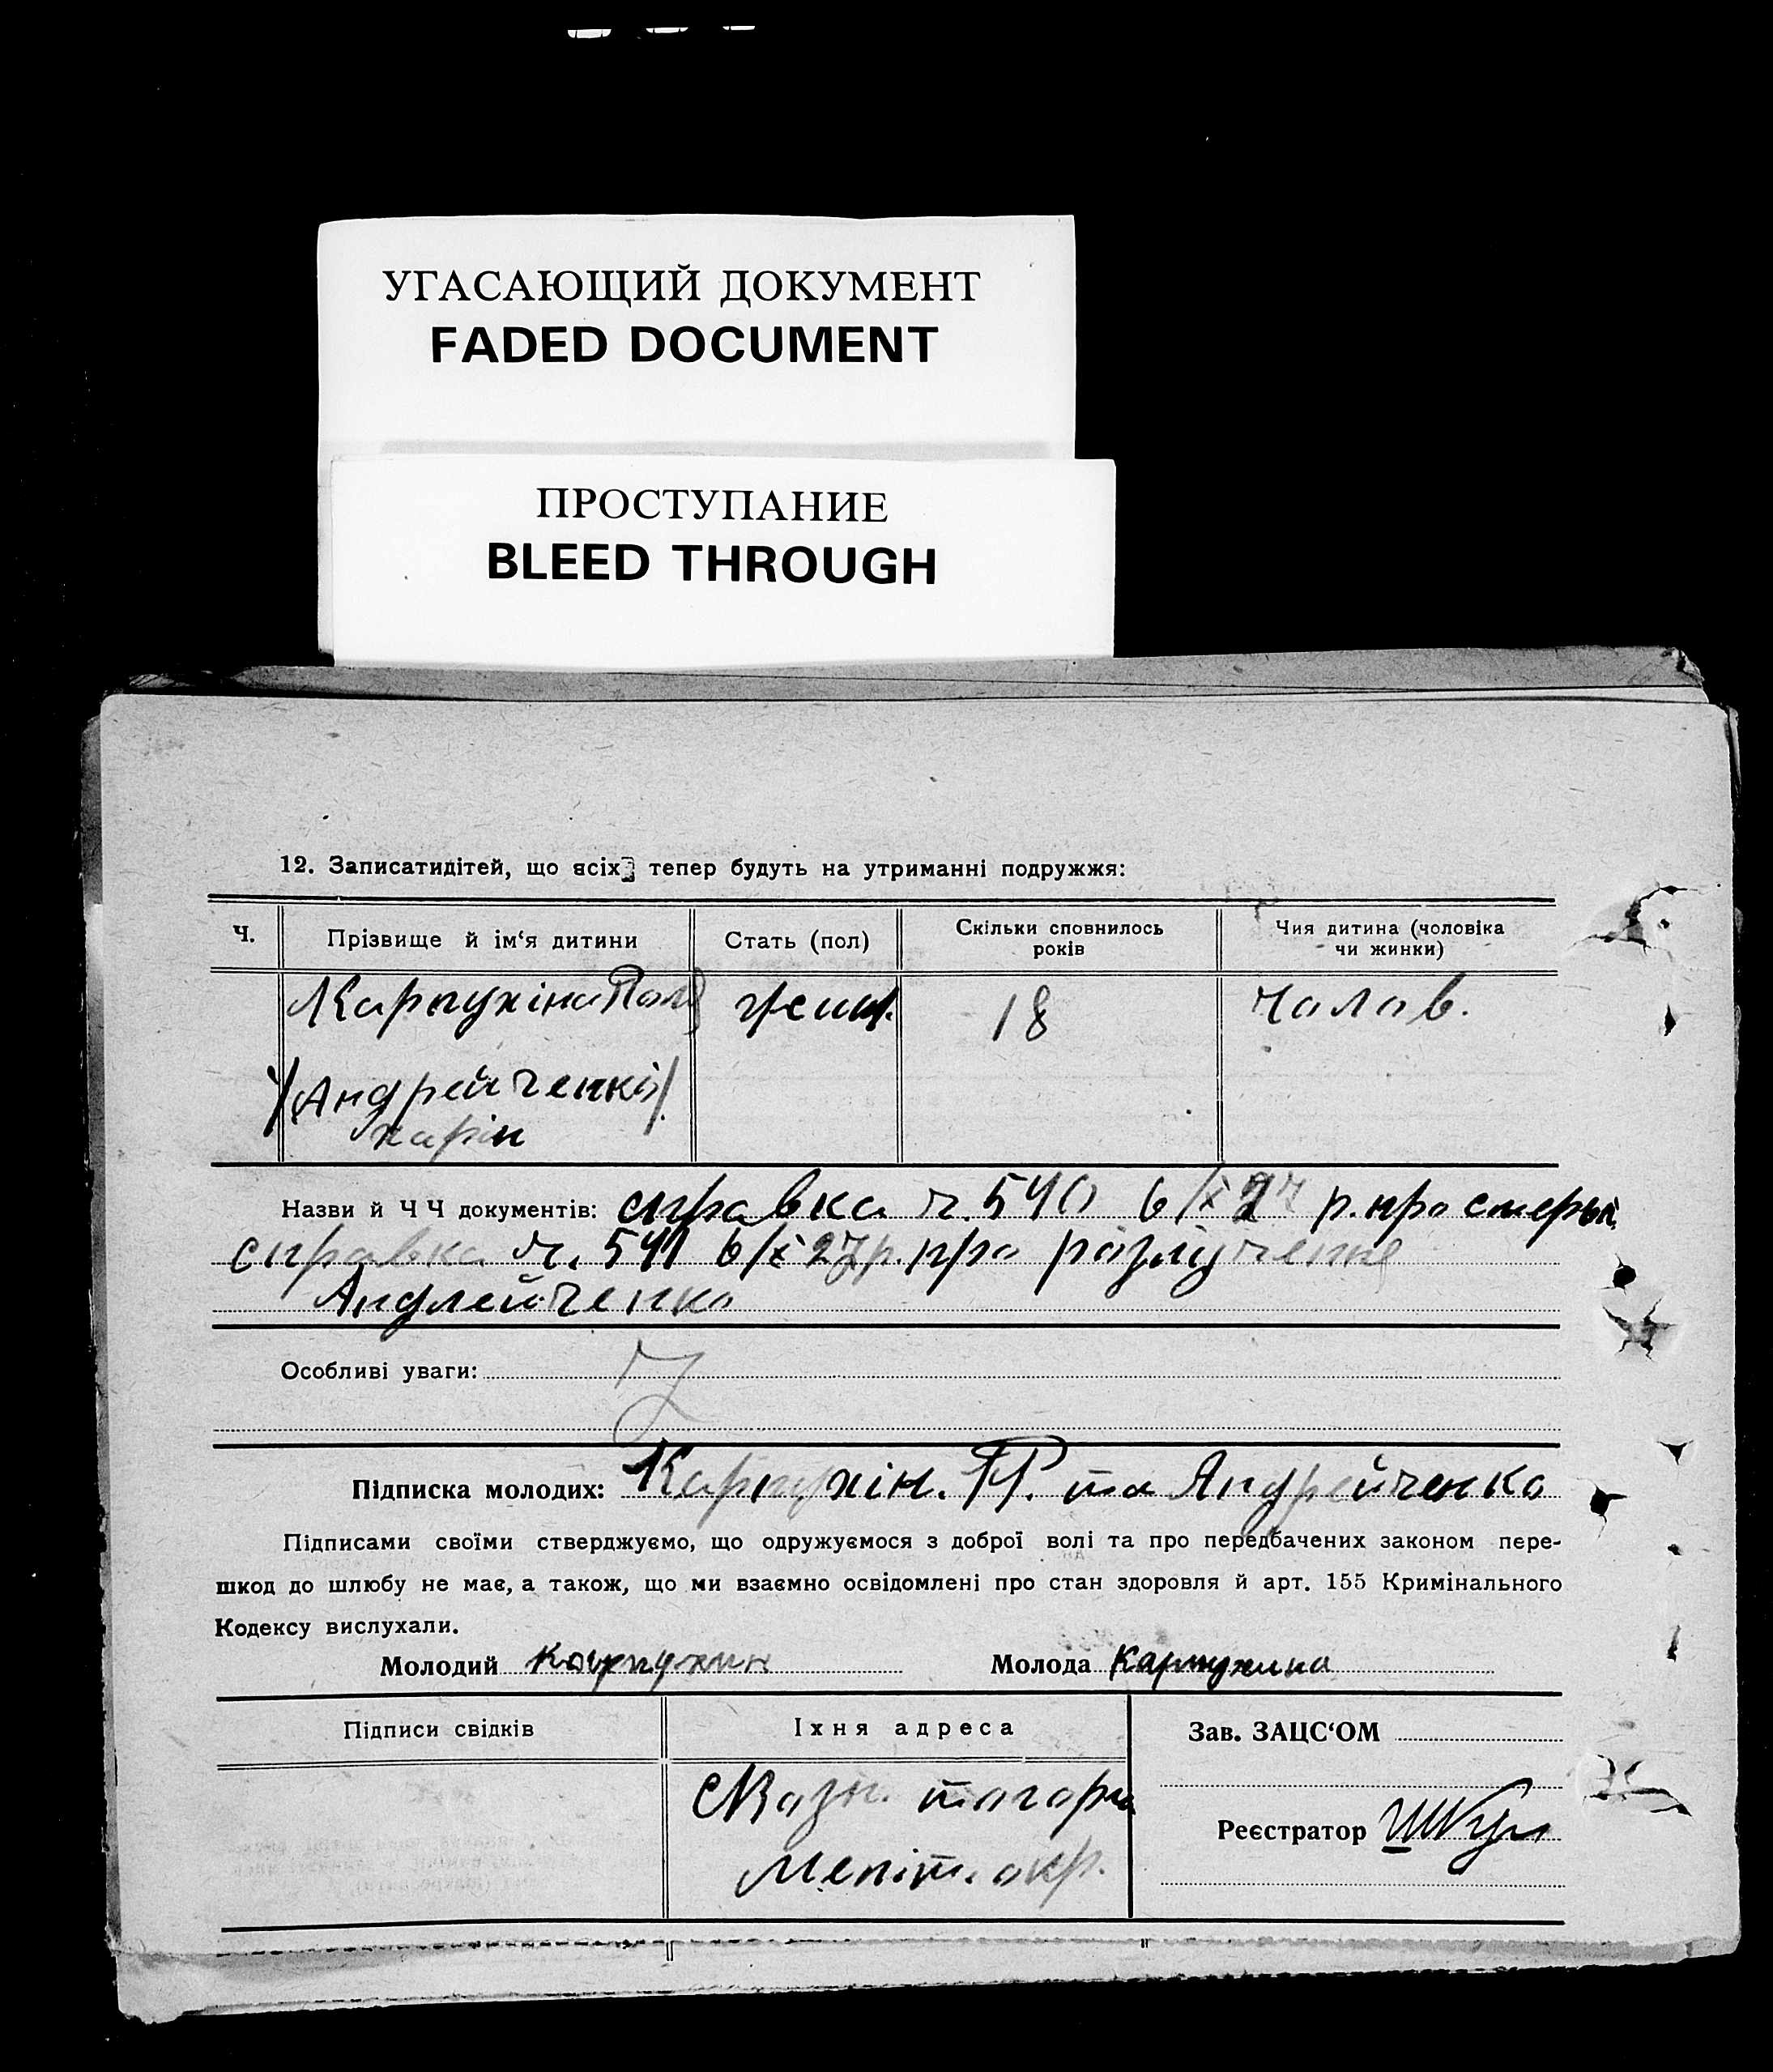 УГАСАЮЩИЙ ДОКУМЕНТ
FADED DOCUMENT
ПРОСТУПАНИЕ
BLEED THROUGH
12. Записатидітей, що всіх тепер будуть на утриманні подружжя:
Ч.
Прізвище й ім‘я дитини
Стать (пол)
Скільки сповнилось
років
Чия дитина (чоловіка
чи жинки)
Карпухіна Пол
жеин.
18
Чолов.
Андрейченко
Назви й Ч Ч документів: справка ч. 540 6/X 27 р. про смерть
справка ч. 541 6/X 27 р. про разлучение
Андлейченко
Особливі уваги:
Підписка молодих: Карпухін. П. та Андрейченко
Підписами своїми стверджуємо, що одружуємося з доброї волі та про передбачених законом пере-
шкод до шлюбу не має, а також, що ми взаємно освідомлені про стан здоровля й арт. 155 Кримінального
Кодексу вислухали.
Молодий Карпухин Молода Карпухина
Підписи свідків
Їхня адреса
Зав. ЗАЦС‘ОМ
Меліт. окр.
Реєстратор